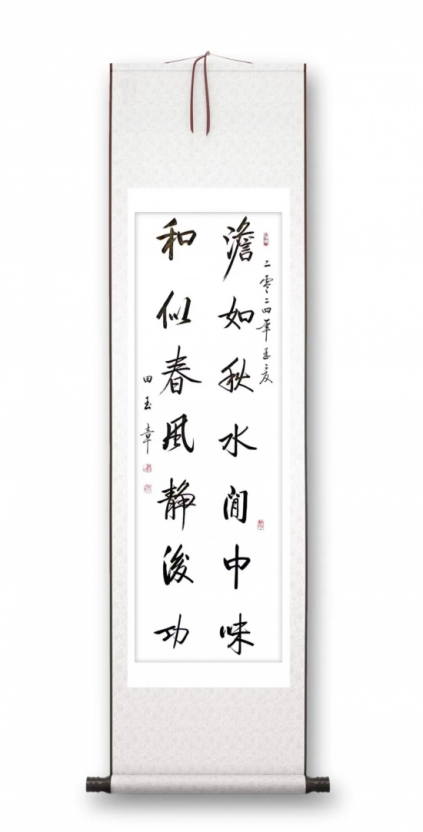 二零二四年
澹如秋水閒中味
和似春風靜後功
田玉章